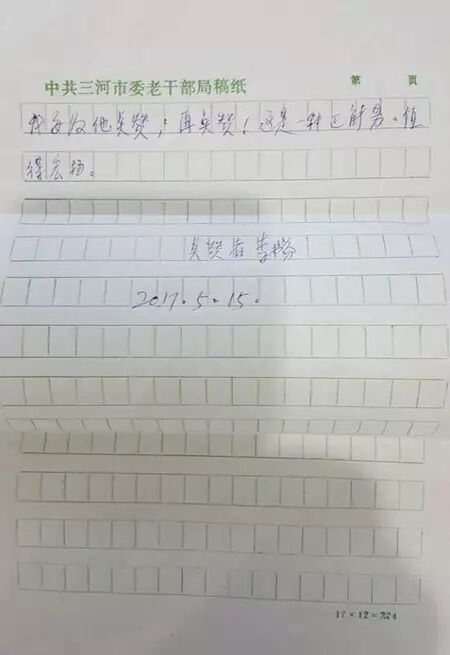 中共三河市委老干部局稿纸 第 页
我要给他点赞,再点赞!这是一种正能量。值
得宏扬。
点赞者李
2017.5.15.
17×12=204